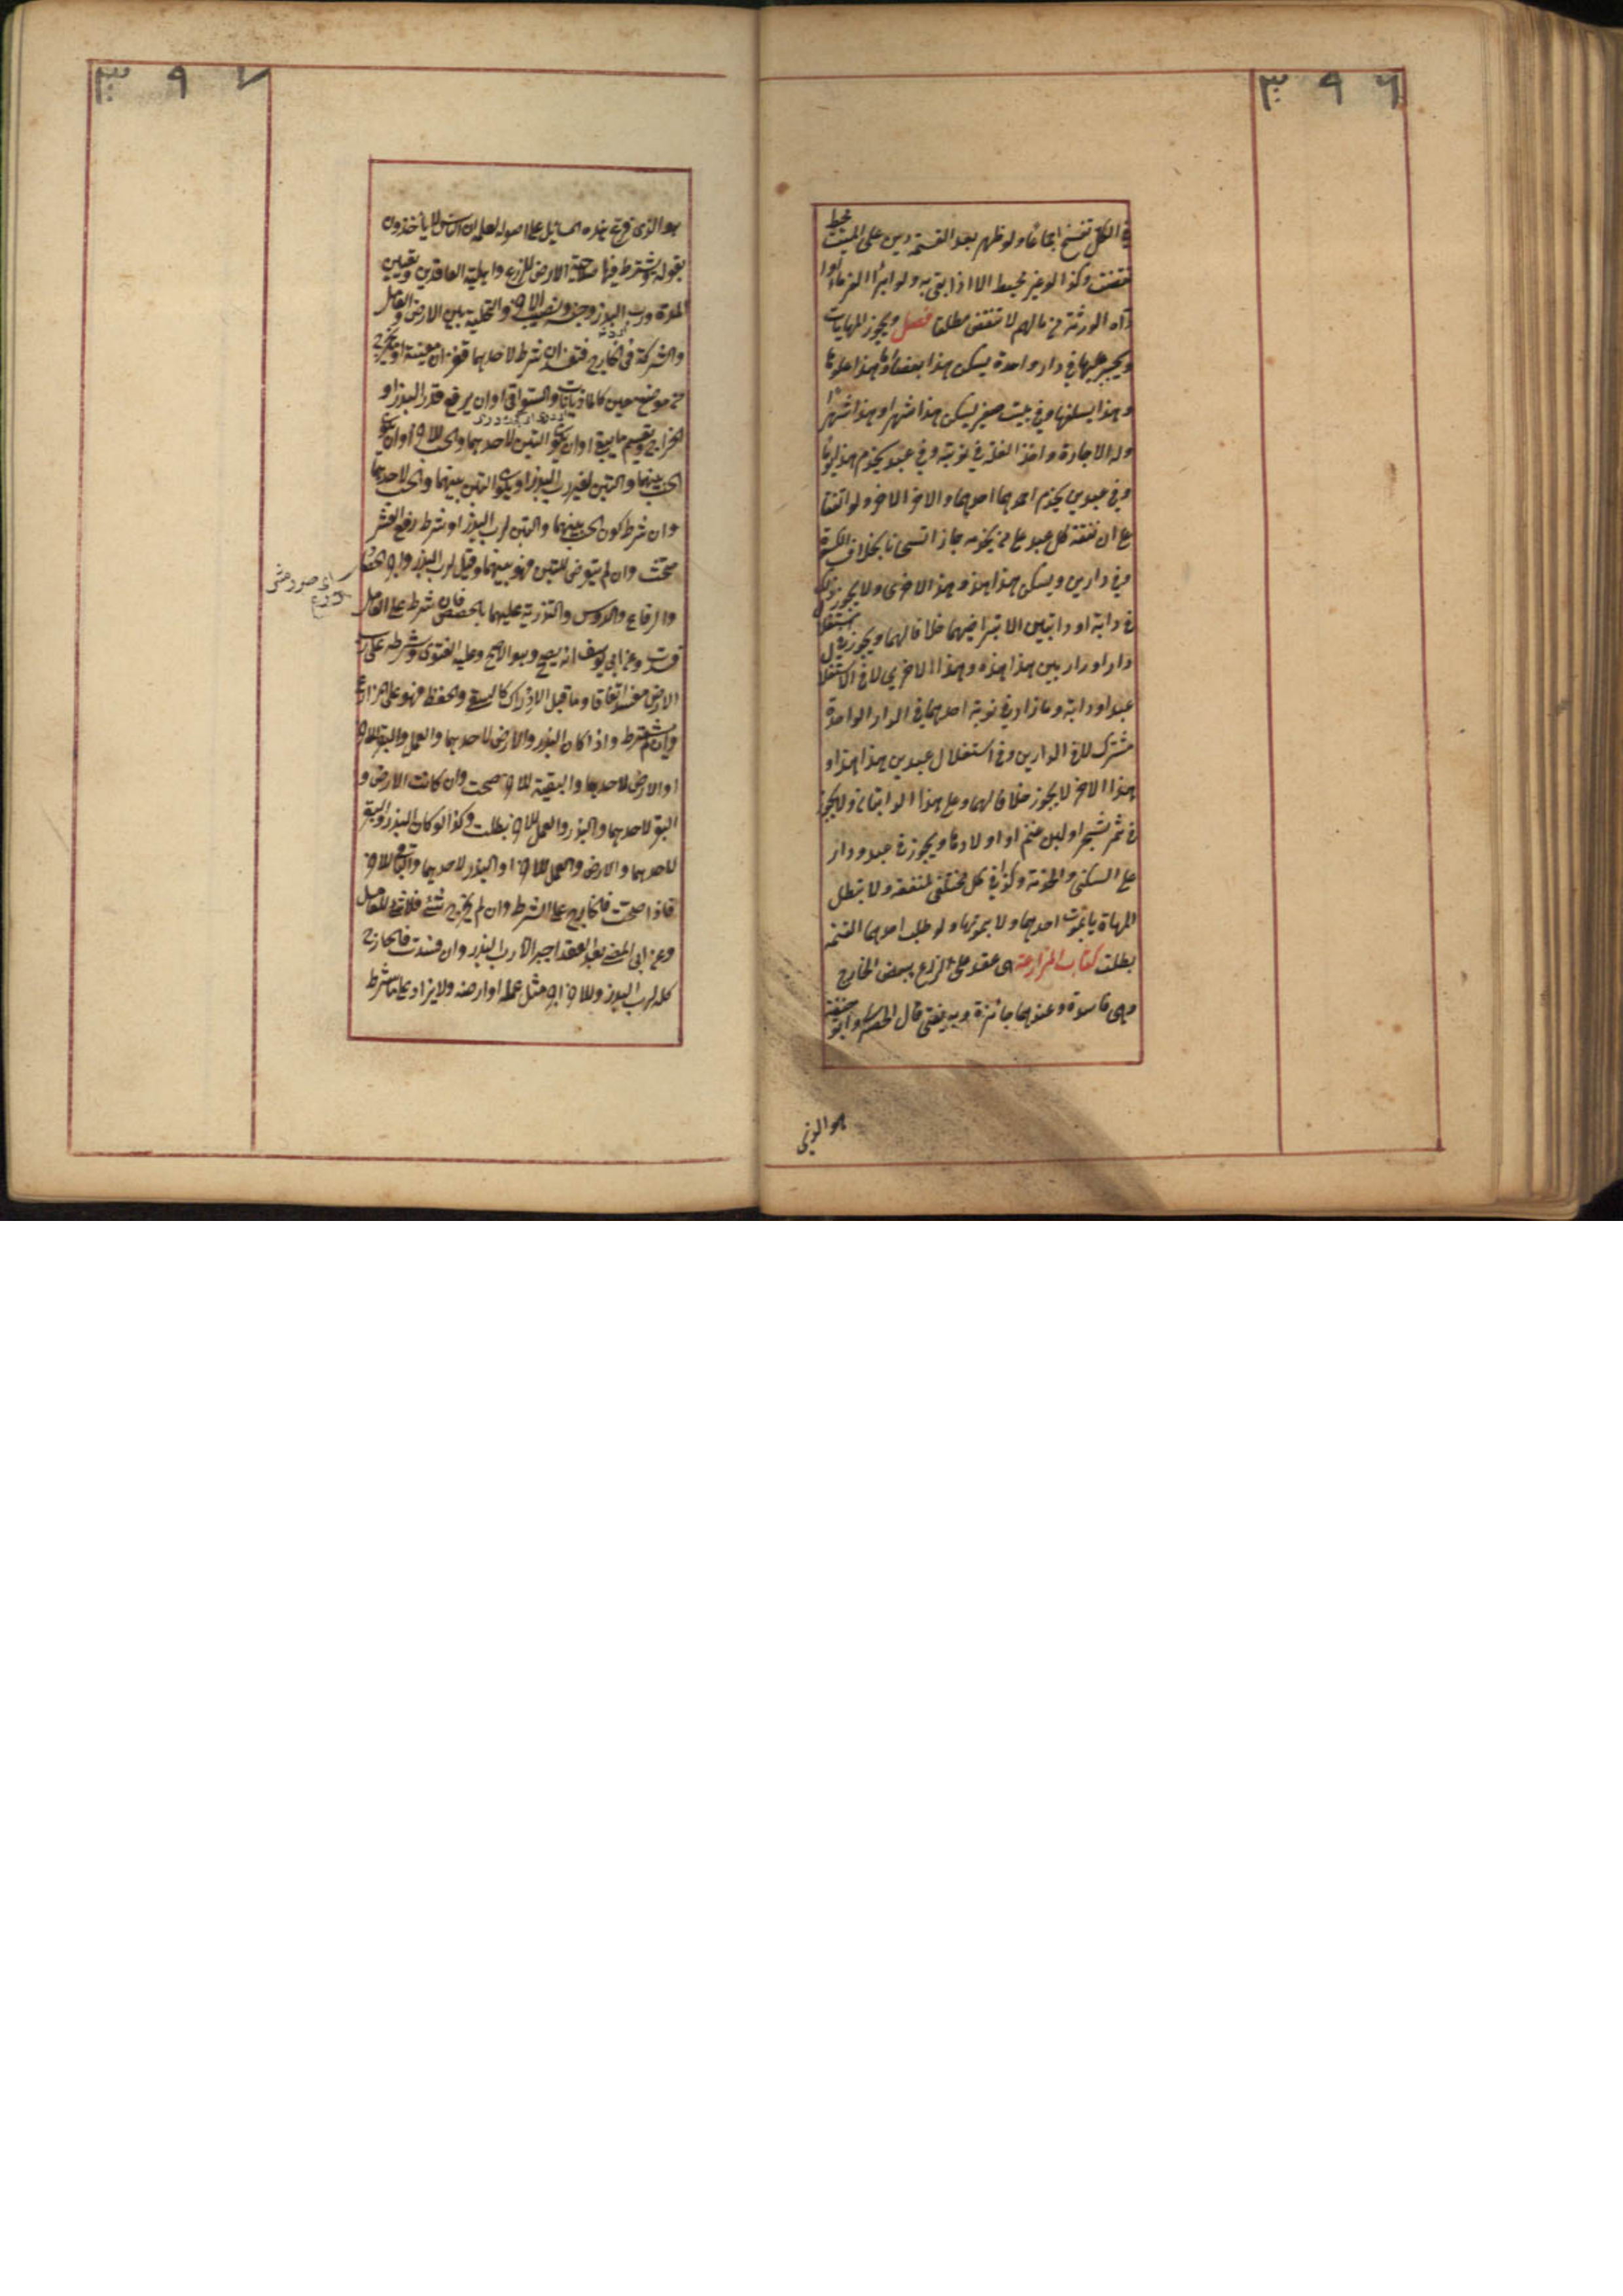 ٣٩٦
في الكل تفسخ اجماعا ولو ظهر بعد القسمة دين على الميت محيط
نقضت وكذا لو غير محيط الا اذا بقي به ولو ابرأ الغرماء او
اداه الورثة من مالهم لا تنقض مطلقا فصل ويجوز المهايات
ويجبر عليها في دار واحدة يسكن هذا بعضا وهذا بعضا وهذا علوها
وهذا سفلها وفي بيت صغير يسكن هذا شهرا وهذا شهرا
وله الاجارة واخذ الغلة في نوبته وفي عبد يخدم هذا يوما
وفي عبدين يخدم احدهما احدهما والاخر الاخر ولو اتفقا
على ان نفقة كل عبد على من يخدمه جاز استحسانا بخلاف الكسوة
وفي دارين ويسكن هذا هذه وهذا الاخرى ولا يجوز ذلك
في دابة او دابتين الا بتراضيهما خلافا لهما ويجوز في استغلال
دار او دارين هذا هذه وهذا الاخرى لا في استغلال
عبد او دابة وما زاد في نوبة احدهما في الدار الواحدة
مشترك لا في الدارين وفي استغلال عبدين هذا هذا و
هذا الاخر لا يجوز خلافا لهما وعلى هذا الدابتان ولا يجوز
في ثمر شجر او لبن غنم او اولادها ويجوز في عبد ودار
على السكنى والخدمة وكذا في كل مختلفي المنفعة ولا تبطل
المهاياة بموت احدهما ولا بموتهما ولو طلب احدهما القسمة
بطلت كتاب المزارعة هي عقد على الزرع ببعض الخارج
وهي فاسدة وعندهما جائزة وبه يفتى قال الحصيري وابو حنيفة
هو الذي
٣٩٧
هو الذي فرع هذه المسائل على اصوله لعلمه ان الناس لا ياخذون
بقوله ويشترط فيها صلاحية الارض للزرع واهلية العاقدين وتعيين
المدة ورب البذر وجنسه ونصيب الاخر والتخلية بين الارض والعامل
والشركة في الخارج فتفسد ان شرط لاحدهما قفزان معينة او ما يخرج
من موضع معين كالماذيانات والسواقي او ان يرفع قدر البذر او
الخراج ويقسم ما بقي او ان يكون التبن لاحدهما والحب للاخر او ان يكون
الحب بينهما والتبن لغير رب البذر او يكون التبن بينهما والحب لاحدهما
وان شرط كون الحب بينهما والتبن لرب البذر او شرط رفع العشر
صحت وان لم يتعرض للتبن فهو بينهما وقيل لرب البذر واجر الحصاد
والرفاع والدوس والتذرية عليهما بالحصص فان شرط على العامل
فسدت وعن ابي يوسف انه يصح وهو الاصح وعليه الفتوى وشرطه على رب
الارض مفسد اتفاقا وما قبل الادراك كالسقي والحفظ فهو على المزارع
وان لم يشترط واذا كان البذر والارض لاحدهما والعمل والبقر للاخر
او الارض لاحدهما والبقية للاخر صحت وان كانت الارض و
البقر لاحدهما والبذر والعمل للاخر بطلت وكذا لو كان البذر والبقر
لاحدهما والارض والعمل للاخر او البذر لاحدهما والباقي للاخر
فاذا صحت فالخارج على الشرط وان لم يخرج شيء فلا شيء للعامل
ومن ابى المضي بعد العقد اجبر الا رب البذر وان فسدت فالخارج
كله لرب البذر وللاخر اجر مثل عمله او ارضه ولا يزاد على ما شرط